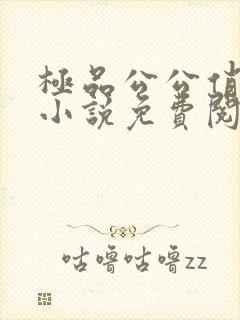 極品公公俏
小說免費閱
咕嚕咕嚕zz